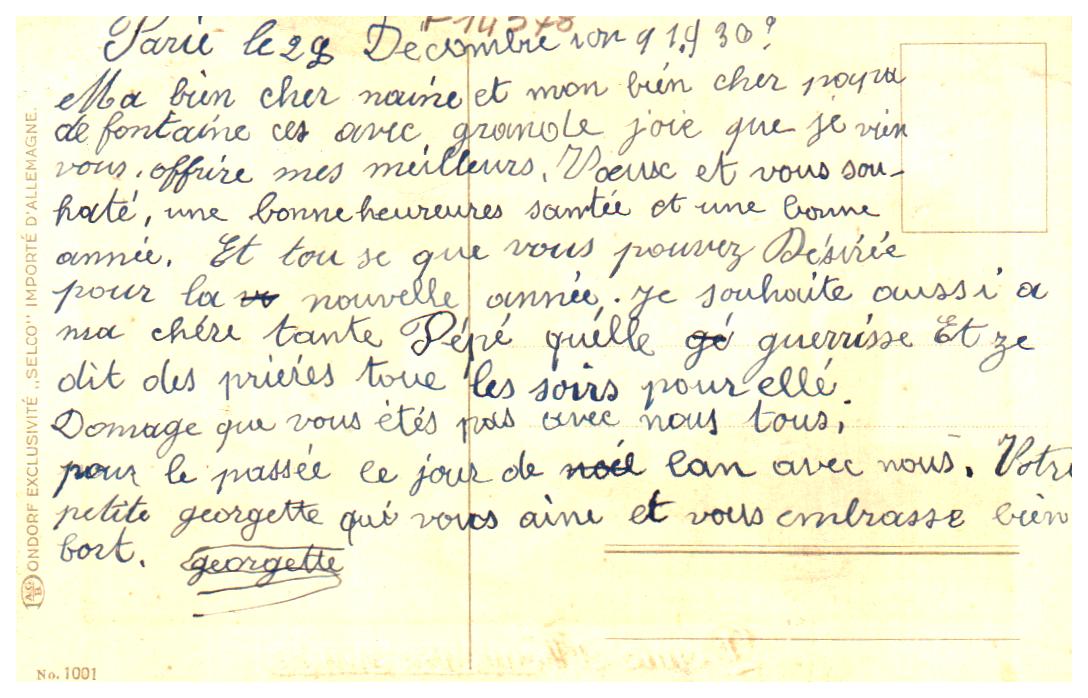 P 14378
Parie le 29 Decembre 1930?
Ma bien cher naine et mon bien cher papa
de fontaine ces avec grande joie que je vien
vous. offrire mes meilleurs. Vœux et vous sou-
haté, une bonne heureures santée et une bonne
année. Et tou se que vous pouvez Désirée
pour la nouvelle année. je souhaite aussi a
ma chére tante Pépé quélle gé guerrisse Et ze
dit des priérés toue les soirs pour ellé.
Domage que vous étés pas avec nous tous,
pour le passée le jour de noél lan avec nous. Votre
petite georgette qui vous aine et vous embrasse bien
bort. georgette
ONDORF EXCLUSIVITÉ „SELCO" IMPORTÉ D'ALLEMAGNE.
No. 1001